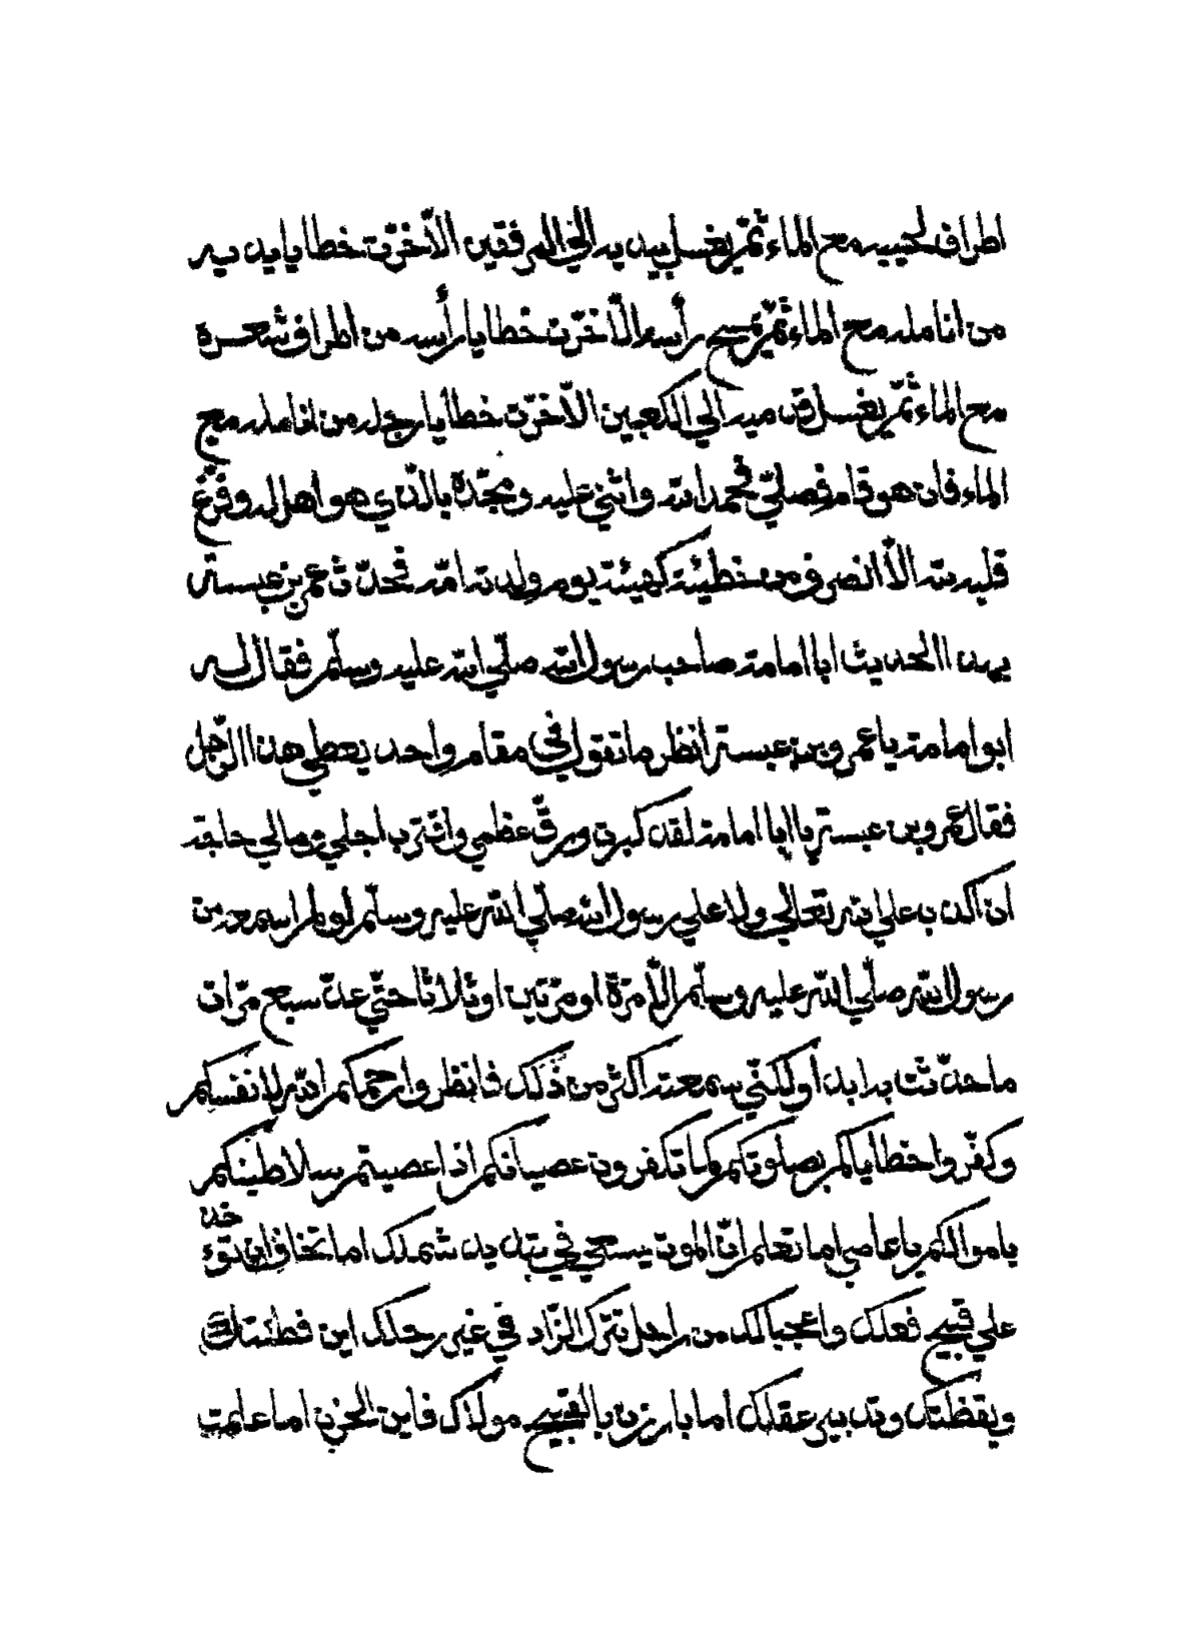 اطراف لحييه مع الماء ثمّ يغسل يديه الي المرفقين الّا خرّت خطايا يديه
من انامله مع الماء ثمّ يمسح رأسه الّا خرّت خطايا رأسه من اطراف شعره
مع الماء ثمّ يغسل قدميه الي الكعبين الّا خرّت خطايا رجله من انامله مع
الماء فان هو قام فصلّي فحمد الله واثني عليه ومجّده بالّذي هو اهل له وفرّغ
قلبه لله الّا انصرف من خطيئة كهيئة يوم ولدته امّه فحدّث عمر بن عبسة
بهذا الحديث ابا امامة صاحب رسول الله صلّي الله عليه وسلّم فقال له
ابو امامة يا عمرو بن عبسة انظر ما تقول في مقام واحد يعطي هذا الرّجل
فقال عمرو بن عبسة يا ابا امامة لقد كبرت ورقّ عظمي واقترب اجلي ومالي حاجة
ان اكذب علي الله تعالي ولا علي رسول الله صلّي الله عليه وسلّم لو لم اسمعه من
رسول الله صلّي الله عليه وسلّم الّا مرّة او مرّتين او ثلاثا حتّي عدّ سبع مرّات
ما حدّثت به ابدا ولكنّي سمعته اكثر من ذلك فانظروا رحمكم الله لانفسكم
وكفّروا خطاياكم بصلوتكم كما تكفرون عصيانكم اذا عصيتم سلاطينكم
باموالكم يا عاصي اما تعلم انّ الموت يسعي في تبديد شملك اما تخاف ان تؤخذ
علي قبيح فعلك واعجبا لك من راحل تترك الزّاد في غير رحلك اين فطنتك
ويقظتك وتدبير عقلك اما بارزت بالقبيح مولاك فاين الحزن اما علمت